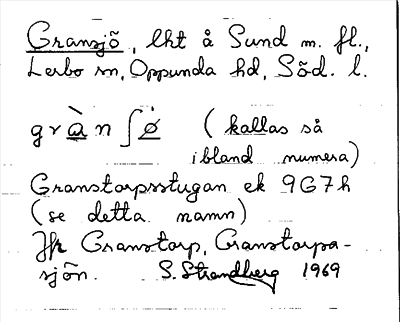 Gransjö, lht å Sund m. fl.,
Lerbo sn, Oppunda hd, Söd. l.
gràn ʃø̇ (kallas så
ibland numera)
Granstorpsstugan ek 9G7h
(se detta namn)
Jfr Granstorp, Granstorpa-
sjön. S. Strandberg 1969